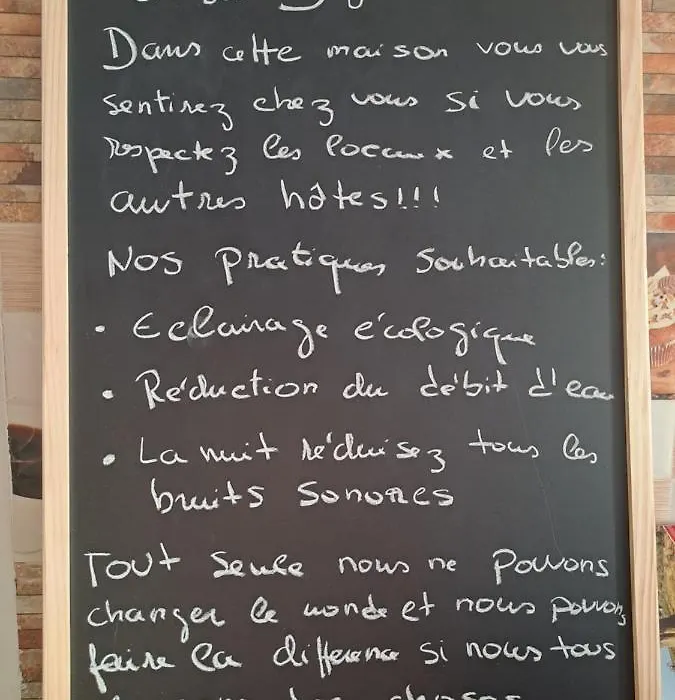 Dans cette maison vous vous
sentirez chez vous si vous
respectez les locaux et les
autres hôtes!!!
Nos pratiques souhaitables:
• Eclairage écologique
• Réduction du débit d'eau
• La nuit réduisez tous les
bruits sonores
Tout seule nous ne pouvons
changer le monde et nous pouvons
faire la difference si nous tous
choses